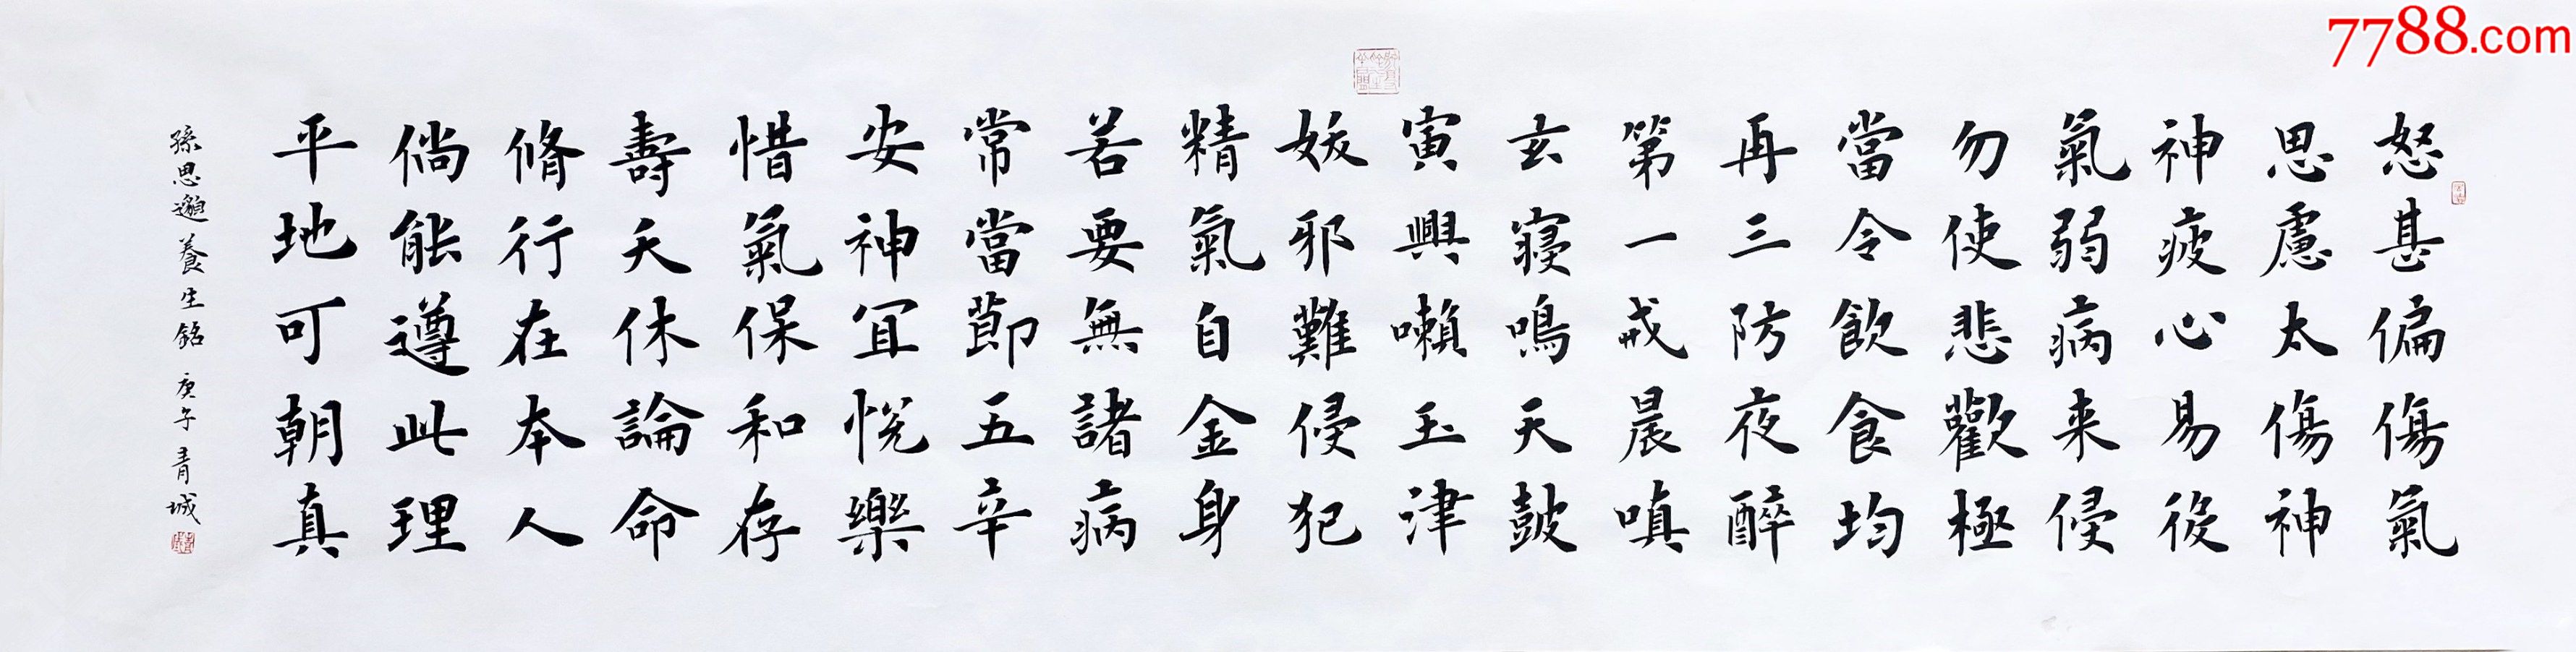 怒甚偏傷氣
思慮太傷神
神疲心易役
氣弱病来侵
勿使悲歡極
當令飲食均
再三防夜醉
第一戒晨嗔
玄寢鳴天鼓
寅興嗽玉津
妖邪難侵犯
精氣自金身
若要無諸病
常當節五辛
安神宜悅樂
惜氣保和存
壽夭休論命
脩行在本人
倘能遵此理
平地可朝真
孫思邈養生銘 庚子 青城
7788.com